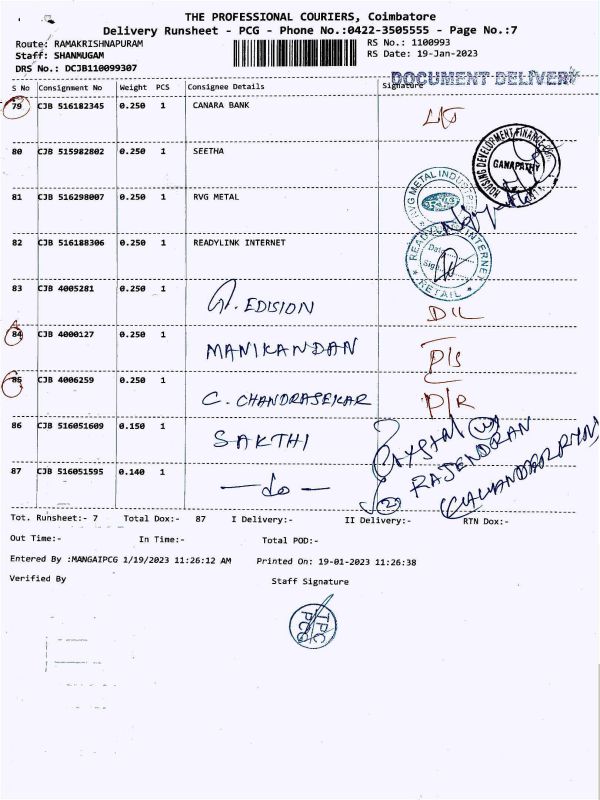 THE PROFESSIONAL COURIERS, Coimbatore
Delivery Runsheet - PCG - Phone No.:0422-3505555 - Page No.:7
Route: RAMAKRISHNAPURAM RS No.: 1100993
Staff: SHANMUGAM RS Date: 19-Jan-2023
DRS No.: DCJB110099307
DOCUMENT DELIVERY
S No Consignment No Weight PCS Consignee Details Signature
79 CJB 516182345 0.250 1 CANARA BANK
80 CJB 515982802 0.250 1 SEETHA
HOUSING DEVELOPMENT FINANCE
GANAPATHY
81 CJB 516298007 0.250 1 RVG METAL
RVG METAL INDUSTRIES
82 CJB 516188306 0.250 1 READYLINK INTERNET
READYLINK INTERNET
Date
Sign
RETAIL
83 CJB 4005281 0.250 1 A. EDISION D/L
84 CJB 4000127 0.250 1 MANIKANDAN D/S
85 CJB 4006259 0.250 1 C. CHANDRASEKAR D/R
86 CJB 516051609 0.150 1 SAKTHI CRYSTAL
RAJENDRAN
87 CJB 516051595 0.140 1 — do — (2)
Tot. Runsheet:- 7 Total Dox:- 87 I Delivery:- II Delivery:- RTN Dox:-
Out Time:- In Time:- Total POD:-
Entered By :MANGAIPCG 1/19/2023 11:26:12 AM Printed On: 19-01-2023 11:26:38
Verified By Staff Signature
TPC
PCG